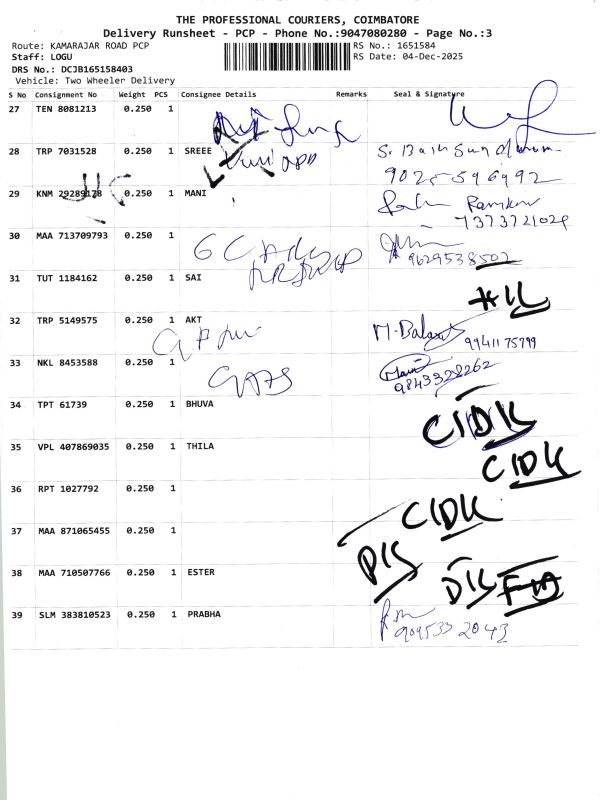 THE PROFESSIONAL COURIERS, COIMBATORE
Delivery Runsheet - PCP - Phone No.:9047080280 - Page No.:3
Route: KAMARAJAR ROAD PCP RS No.: 1651584
Staff: LOGU RS Date: 04-Dec-2025
DRS No.: DCJB165158403
Vehicle: Two Wheeler Delivery
S No Consignment No Weight PCS Consignee Details Remarks Seal & Signature
27 TEN 8081213 0.250 1
28 TRP 7031528 0.250 1 SREEE
9025596992
29 KNM 29289178 0.250 1 MANI
Ramkumar
7373721029
30 MAA 713709793 0.250 1
9629538502
31 TUT 1184162 0.250 1 SAI
32 TRP 5149575 0.250 1 AKT
M. Balan
9941175799
33 NKL 8453588 0.250 1
9843328262
34 TPT 61739 0.250 1 BHUVA
CIDK
35 VPL 407869035 0.250 1 THILA
CIDK
36 RPT 1027792 0.250 1
CIDK
37 MAA 871065455 0.250 1
38 MAA 710507766 0.250 1 ESTER
39 SLM 383810523 0.250 1 PRABHA